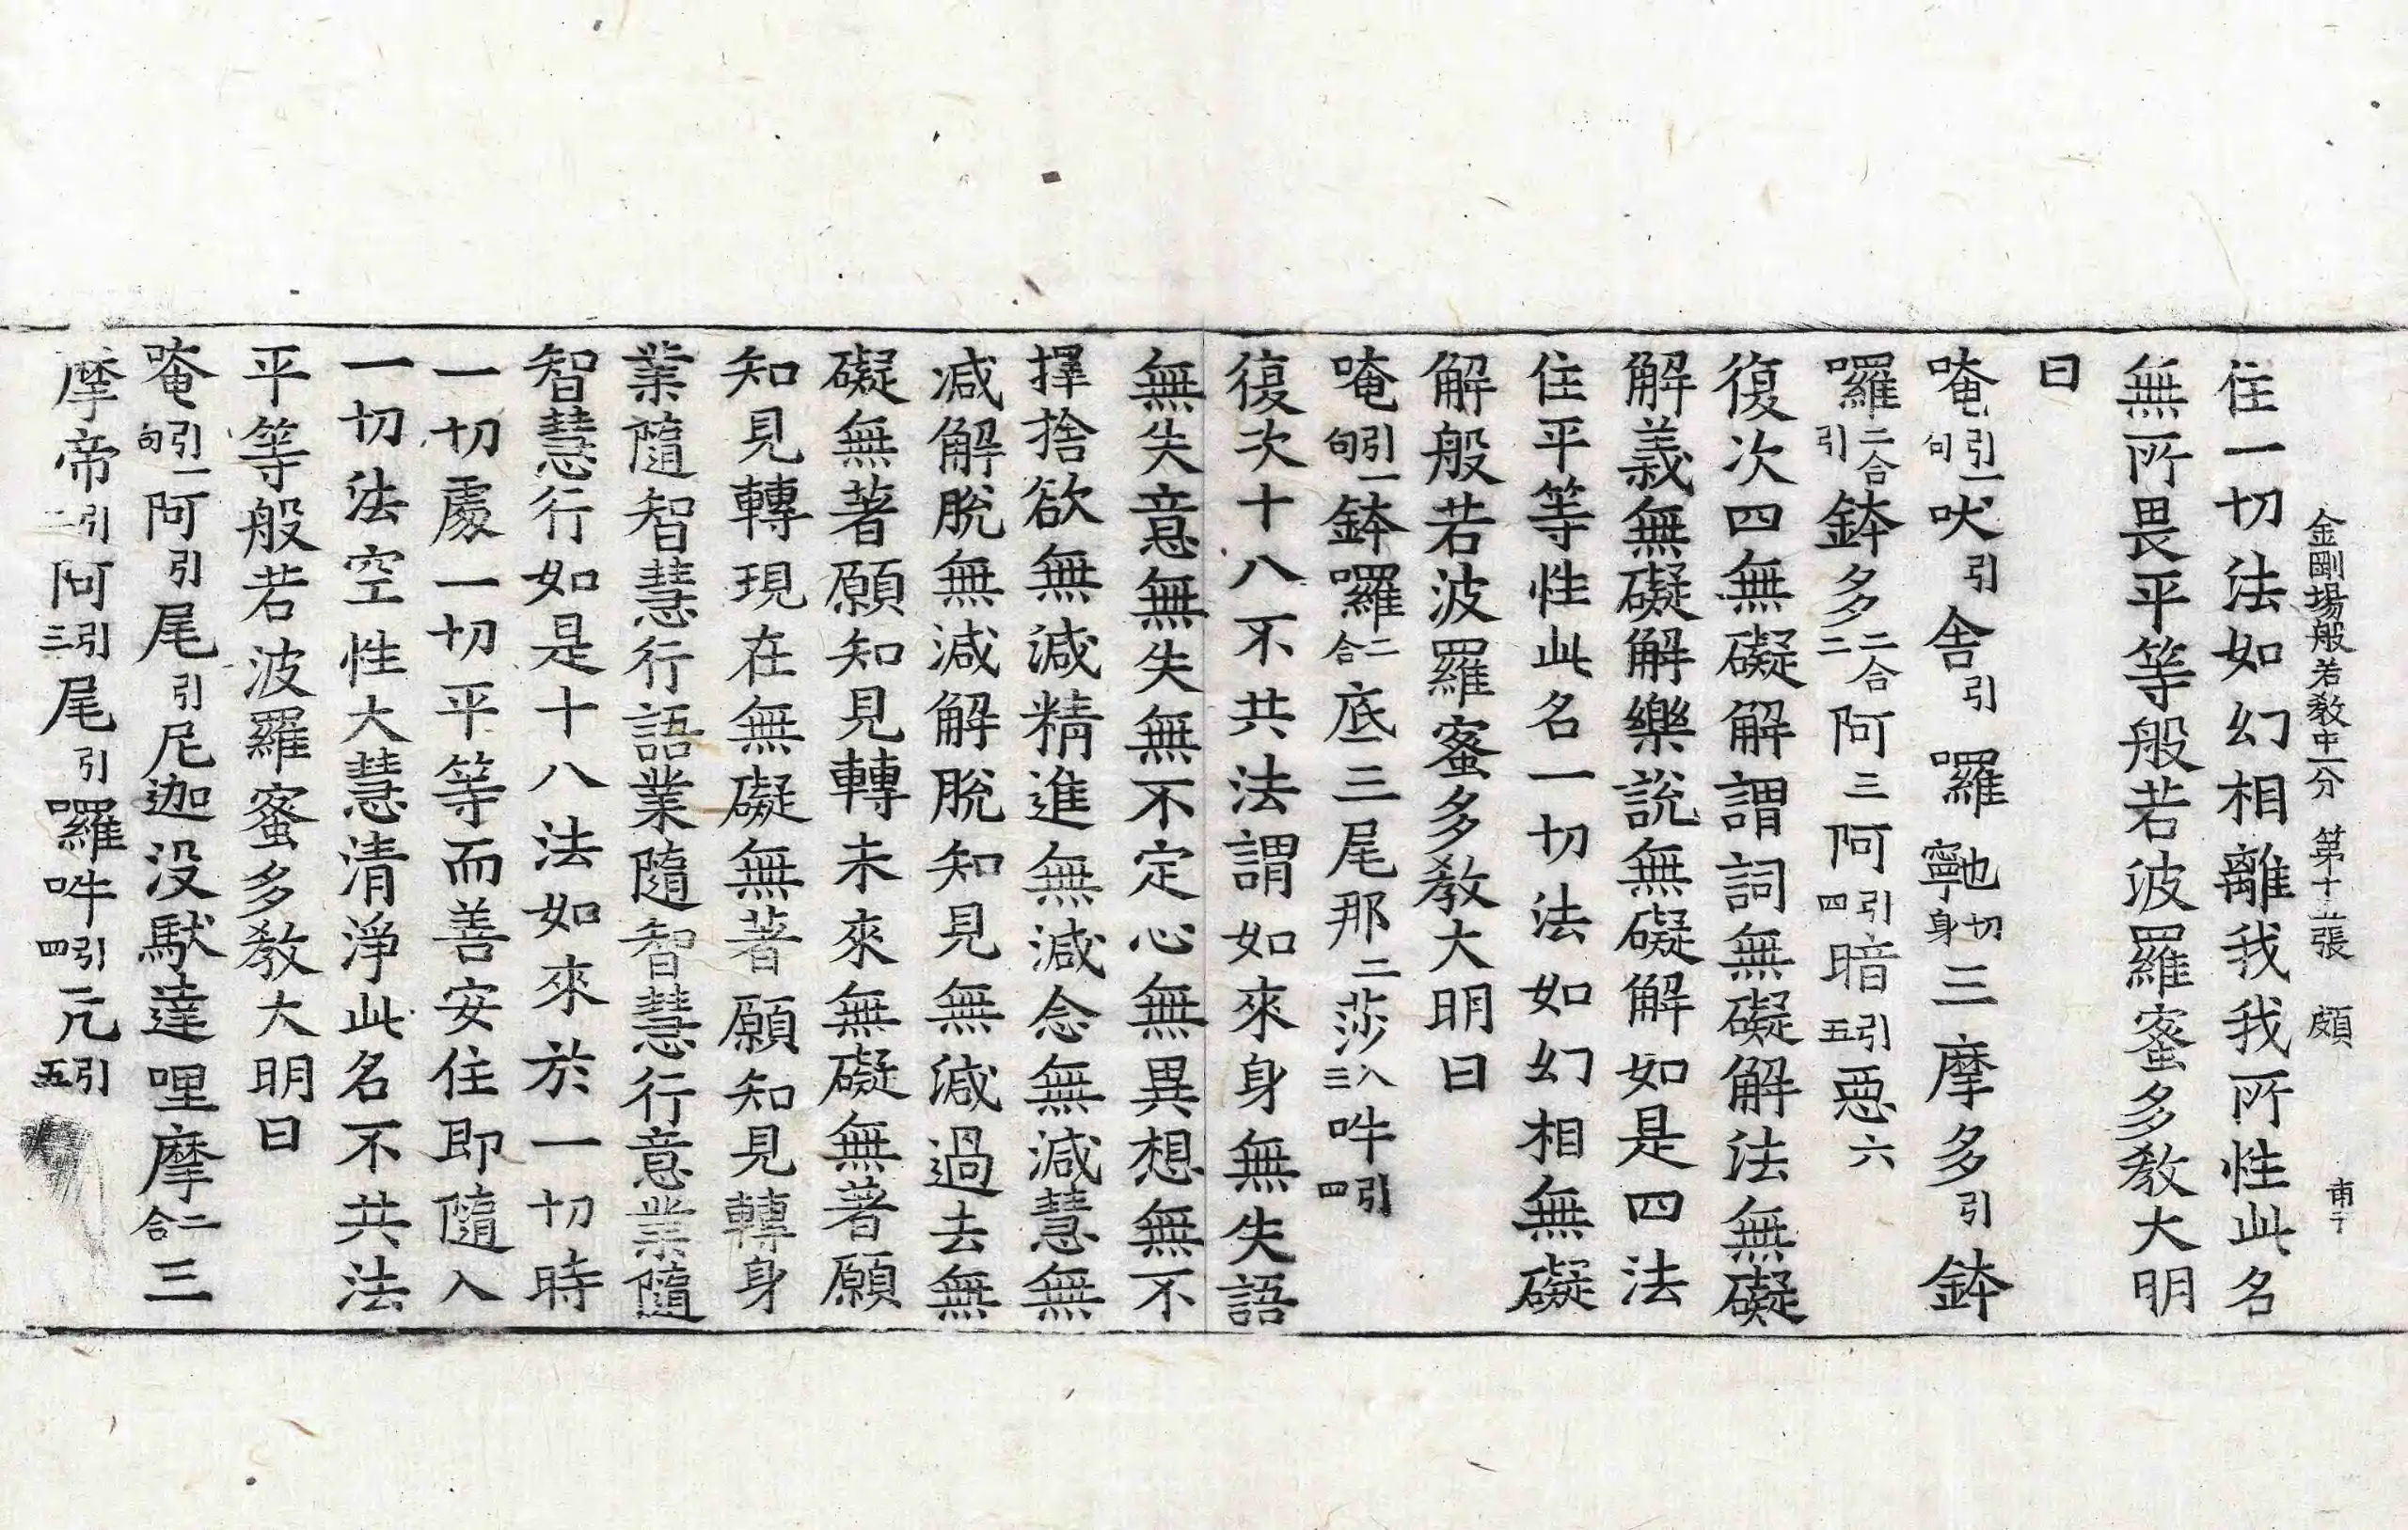 金剛場般若教中一分 第十五張 頗
住一切法如幻相離我我所性此名
無所畏平等般若波羅蜜多教大明
曰
唵引一句吠引舍引囉寧也切身三摩多引鉢
囉二合引鉢多二合二阿三阿引四暗引五惡六
復次四無礙解謂詞無礙解法無礙
解義無礙解樂說無礙解如是四法
住平等性此名一切法如幻相無礙
解般若波羅蜜多教大明曰
唵引一句鉢囉二合底三尾那二莎入三吽引四
復次十八不共法謂如來身無失語
無失意無失無不定心無異想無不
擇捨欲無減精進無減念無減慧無
減解脫無減解脫知見無減過去無
礙無著願知見轉未來無礙無著願
知見轉現在無礙無著願知見轉身
業隨智慧行語業隨智慧行意業隨
智慧行如是十八法如來於一切時
一切處一切平等而善安住即隨入
一切法空性大慧清淨此名不共法
平等般若波羅蜜多教大明曰
唵引一句阿引尾引尼迦沒馱達哩摩二合三
摩帝引二阿引三尾引囉吽引四亢引五